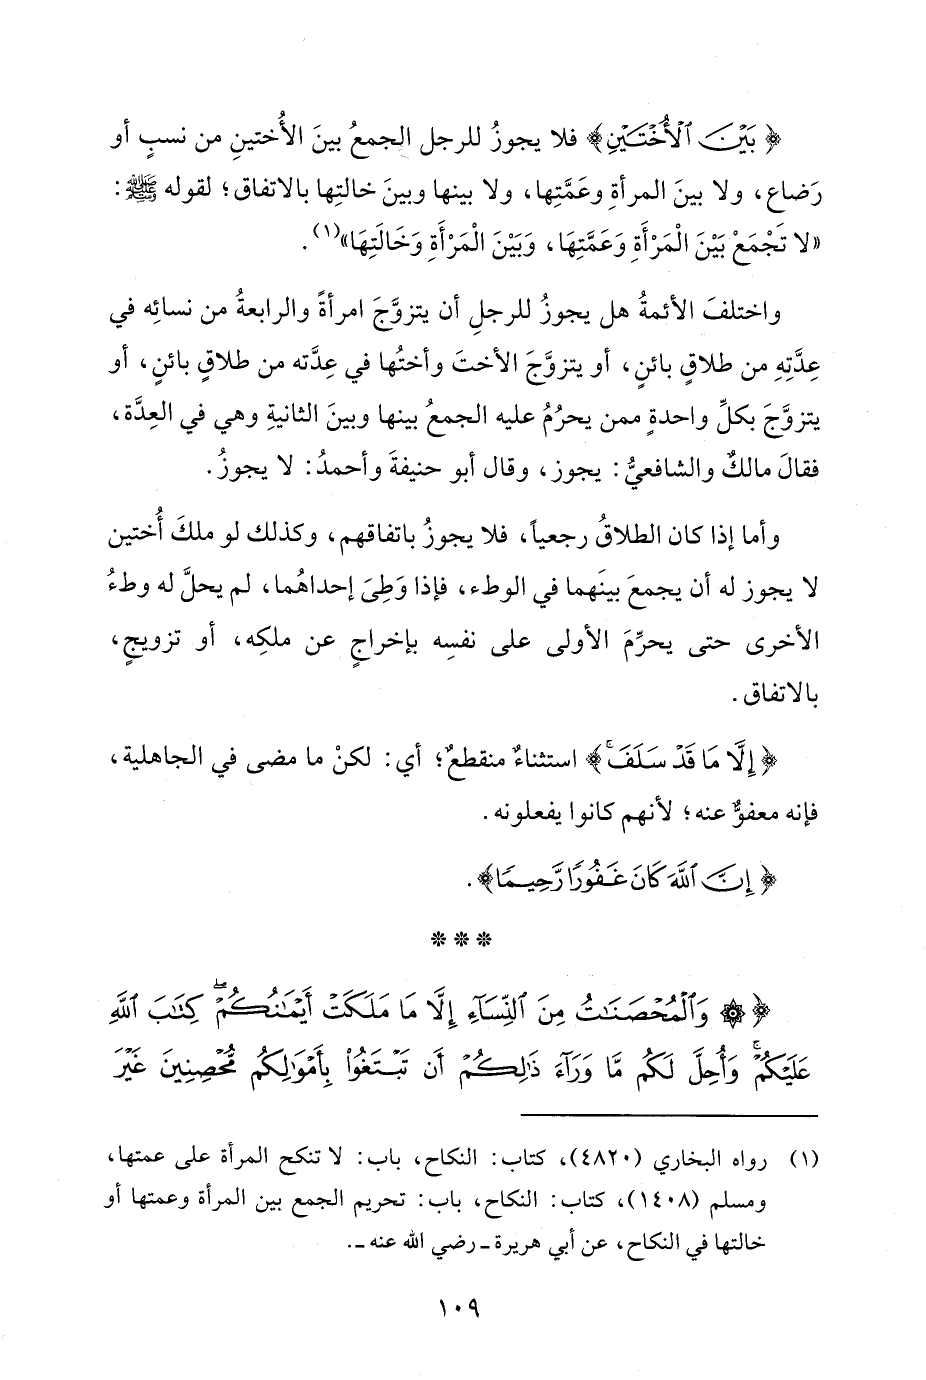 ﴿بَيْنَ ٱلْأُخْتَيْنِ﴾ فلا يجوزُ للرجل الجمعُ بينَ الأُختينِ من نسبٍ أو
رَضاع، ولا بينَ المرأةِ وعَمَّتِها، ولا بينها وبينَ خالتِها بالاتفاق؛ لقوله ﷺ:
«لا تَجْمَعْ بَيْنَ الْمَرْأَةِ وَعَمَّتِهَا، وَبَيْنَ الْمَرْأَةِ وَخَالَتِهَا»(١).
واختلفَ الأئمةُ هل يجوزُ للرجلِ أن يتزوَّجَ امرأةً والرابعةُ من نسائِه في
عِدَّتِهِ من طلاقٍ بائنٍ، أو يتزوَّجَ الأختَ وأختُها في عِدَّته من طلاقٍ بائنٍ، أو
يتزوَّجَ بكلِّ واحدةٍ ممن يحرُمُ عليه الجمعُ بينها وبينَ الثانيةِ وهي في العِدَّة،
فقالَ مالكٌ والشافعيُّ: يجوز، وقال أبو حنيفةَ وأحمدُ: لا يجوزُ.
وأما إذا كان الطلاقُ رجعياً، فلا يجوزُ باتفاقهم، وكذلك لو ملكَ أُختين
لا يجوز له أن يجمعَ بينَهما في الوطء، فإذا وَطِئَ إحداهُما، لم يحلَّ له وطءُ
الأخرى حتى يحرِّمَ الأولى على نفسِه بإخراجٍ عن ملكِه، أو تزويجٍ،
بالاتفاق.
﴿إِلَّا مَا قَدْ سَلَفَ ۚ﴾ استثناءٌ منقطعٌ؛ أي: لكنْ ما مضى في الجاهلية،
فإنه معفوٌّ عنه؛ لأنهم كانوا يفعلونه.
﴿إِنَّ ٱللَّهَ كَانَ غَفُورًا رَّحِيمًا﴾.
* * *
﴿۞ وَٱلْمُحْصَنَـٰتُ مِنَ ٱلنِّسَآءِ إِلَّا مَا مَلَكَتْ أَيْمَـٰنُكُمْ ۖ كِتَـٰبَ ٱللَّهِ
عَلَيْكُمْ ۚ وَأُحِلَّ لَكُم مَّا وَرَآءَ ذَٰلِكُمْ أَن تَبْتَغُوا۟ بِأَمْوَٰلِكُم مُّحْصِنِينَ غَيْرَ
(١) رواه البخاري (٤٨٢٠)، كتاب: النكاح، باب: لا تنكح المرأة على عمتها،
ومسلم (١٤٠٨)، كتاب: النكاح، باب: تحريم الجمع بين المرأة وعمتها أو
خالتها في النكاح، عن أبي هريرة ـ رضي الله عنه ـ.
١٠٩